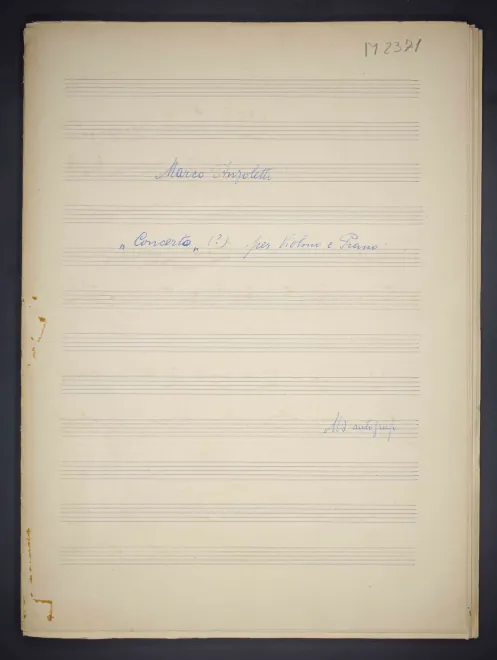 M 2321
Marco Anzoletti
„ Concerto „ (?) per Violino e Piano
Ms autogr.